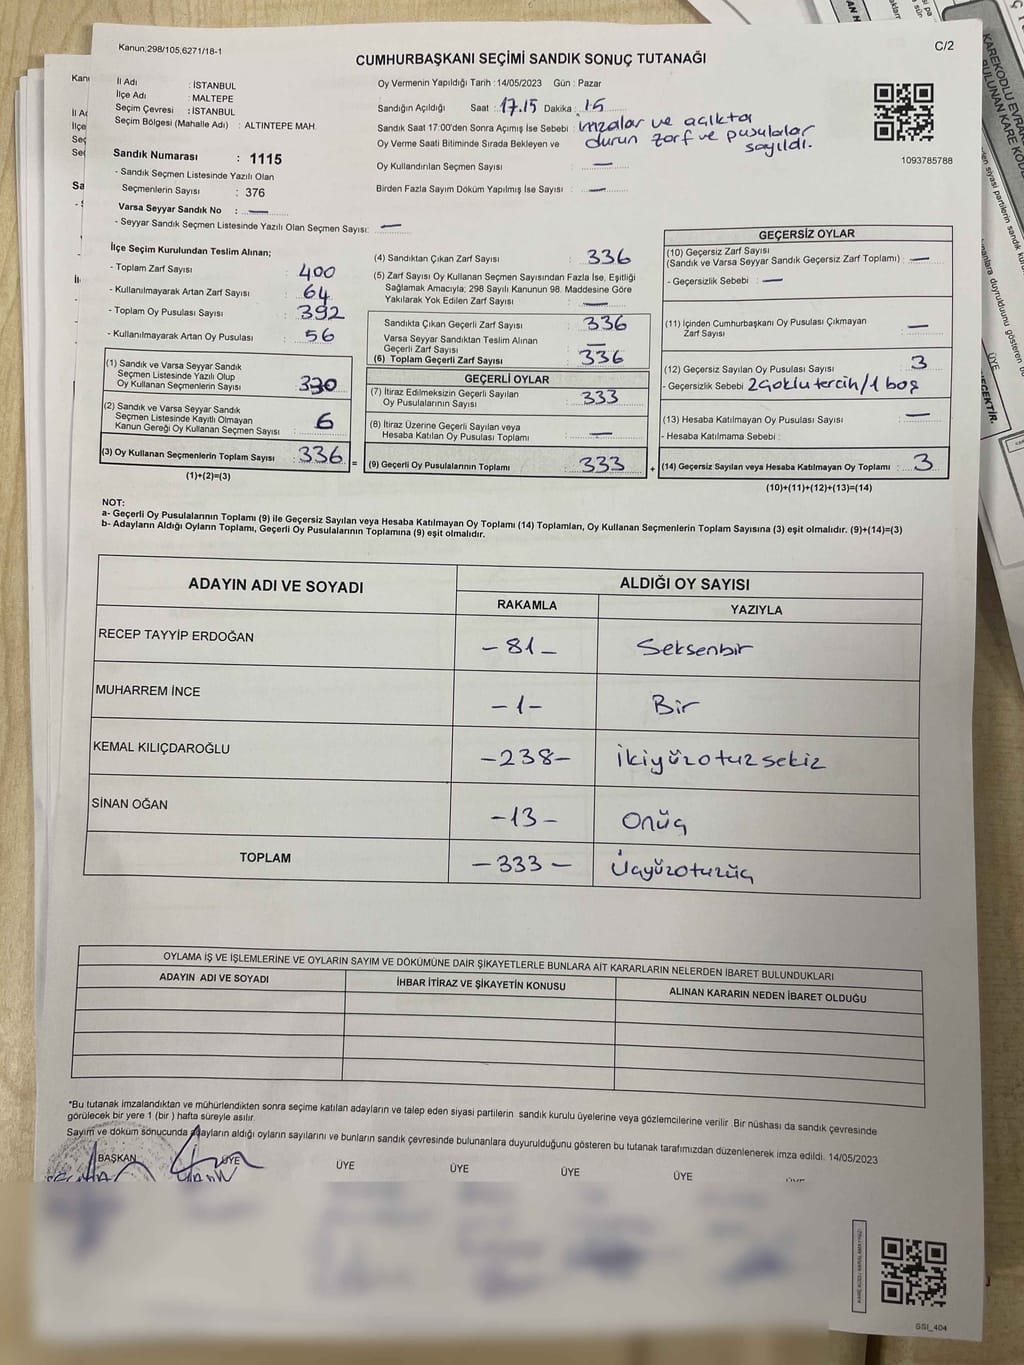 Kanun;298/105,6271/18-1
C/2
CUMHURBAŞKANI SEÇİMİ SANDIK SONUÇ TUTANAĞI
İl Adı : İSTANBUL
İlçe Adı : MALTEPE
Seçim Çevresi : İSTANBUL
Seçim Bölgesi (Mahalle Adı) : ALTINTEPE MAH.
Sandık Numarası : 1115
- Sandık Seçmen Listesinde Yazılı Olan
Seçmenlerin Sayısı : 376
Varsa Seyyar Sandık No : —
- Seyyar Sandık Seçmen Listesinde Yazılı Olan Seçmen Sayısı: —
Oy Vermenin Yapıldığı Tarih : 14/05/2023 Gün : Pazar
Sandığın Açıldığı Saat : 17.15 Dakika : 15
Sandık Saat 17:00'den Sonra Açımış İse Sebebi : imzalar ve açıkta
Oy Verme Saati Bitiminde Sırada Bekleyen ve durun zarf ve pusulalar
sayıldı.
Oy Kullandırılan Seçmen Sayısı : —
Birden Fazla Sayım Döküm Yapılmış İse Sayısı : —
1093785788
İlçe Seçim Kurulundan Teslim Alınan;
- Toplam Zarf Sayısı : 400
- Kullanılmayarak Artan Zarf Sayısı : 64
- Toplam Oy Pusulası Sayısı : 392
- Kullanılmayarak Artan Oy Pusulası : 56
(1) Sandık ve Varsa Seyyar Sandık
Seçmen Listesinde Yazılı Olup
Oy Kullanan Seçmenlerin Sayısı : 330
(2) Sandık ve Varsa Seyyar Sandık
Seçmen Listesinde Kayıtlı Olmayan
Kanun Gereği Oy Kullanan Seçmen Sayısı : 6
(3) Oy Kullanan Seçmenlerin Toplam Sayısı : 336 =
(1)+(2)=(3)
(4) Sandıktan Çıkan Zarf Sayısı : 336
(5) Zarf Sayısı Oy Kullanan Seçmen Sayısından Fazla İse, Eşitliği
Sağlamak Amacıyla; 298 Sayılı Kanunun 98. Maddesine Göre
Yakılarak Yok Edilen Zarf Sayısı : —
Sandıkta Çıkan Geçerli Zarf Sayısı : 336
Varsa Seyyar Sandıktan Teslim Alınan
Geçerli Zarf Sayısı : —
(6) Toplam Geçerli Zarf Sayısı : 336
GEÇERLİ OYLAR
(7) İtiraz Edilmeksizin Geçerli Sayılan
Oy Pusulalarının Sayısı : 333
(8) İtiraz Üzerine Geçerli Sayılan veya
Hesaba Katılan Oy Pusulası Toplamı : —
(9) Geçerli Oy Pusulalarının Toplamı : 333 +
GEÇERSİZ OYLAR
(10) Geçersiz Zarf Sayısı
(Sandık ve Varsa Seyyar Sandık Geçersiz Zarf Toplamı) : —
- Geçersizlik Sebebi : —
(11) İçinden Cumhurbaşkanı Oy Pusulası Çıkmayan
Zarf Sayısı : —
(12) Geçersiz Sayılan Oy Pusulası Sayısı : 3
- Geçersizlik Sebebi 2 Çoklu tercih/1 boş
(13) Hesaba Katılmayan Oy Pusulası Sayısı : —
- Hesaba Katılmama Sebebi :
(14) Geçersiz Sayılan veya Hesaba Katılmayan Oy Toplamı : 3
(10)+(11)+(12)+(13)=(14)
NOT:
a- Geçerli Oy Pusulalarının Toplamı (9) ile Geçersiz Sayılan veya Hesaba Katılmayan Oy Toplamı (14) Toplamları, Oy Kullanan Seçmenlerin Toplam Sayısına (3) eşit olmalıdır. (9)+(14)=(3)
b- Adayların Aldığı Oyların Toplamı, Geçerli Oy Pusulalarının Toplamına (9) eşit olmalıdır.
ADAYIN ADI VE SOYADI
ALDIĞI OY SAYISI
RAKAMLA YAZIYLA
RECEP TAYYİP ERDOĞAN -81- Seksenbir
MUHARREM İNCE -1- Bir
KEMAL KILIÇDAROĞLU -238- İkiyüzotuzsekiz
SİNAN OĞAN -13- Onüç
TOPLAM -333- Üçyüzotuzüç
OYLAMA İŞ VE İŞLEMLERİNE VE OYLARIN SAYIM VE DÖKÜMÜNE DAİR ŞİKAYETLERLE BUNLARA AİT KARARLARIN NELERDEN İBARET BULUNDUKLARI
ADAYIN ADI VE SOYADI İHBAR İTİRAZ VE ŞİKAYETİN KONUSU ALINAN KARARIN NEDEN İBARET OLDUĞU
*Bu tutanak imzalandıktan ve mühürlendikten sonra seçime katılan adayların ve talep eden siyasi partilerin sandık kurulu üyelerine veya gözlemcilerine verilir .Bir nüshası da sandık çevresinde
görülecek bir yere 1 (bir ) hafta süreyle asılır.
Sayım ve döküm sonucunda adayların aldığı oyların sayılarını ve bunların sandık çevresinde bulunanlara duyurulduğunu gösteren bu tutanak tarafımızdan düzenlenerek imza edildi. 14/05/2023
BAŞKAN ÜYE ÜYE ÜYE ÜYE ÜYE
SSI_404